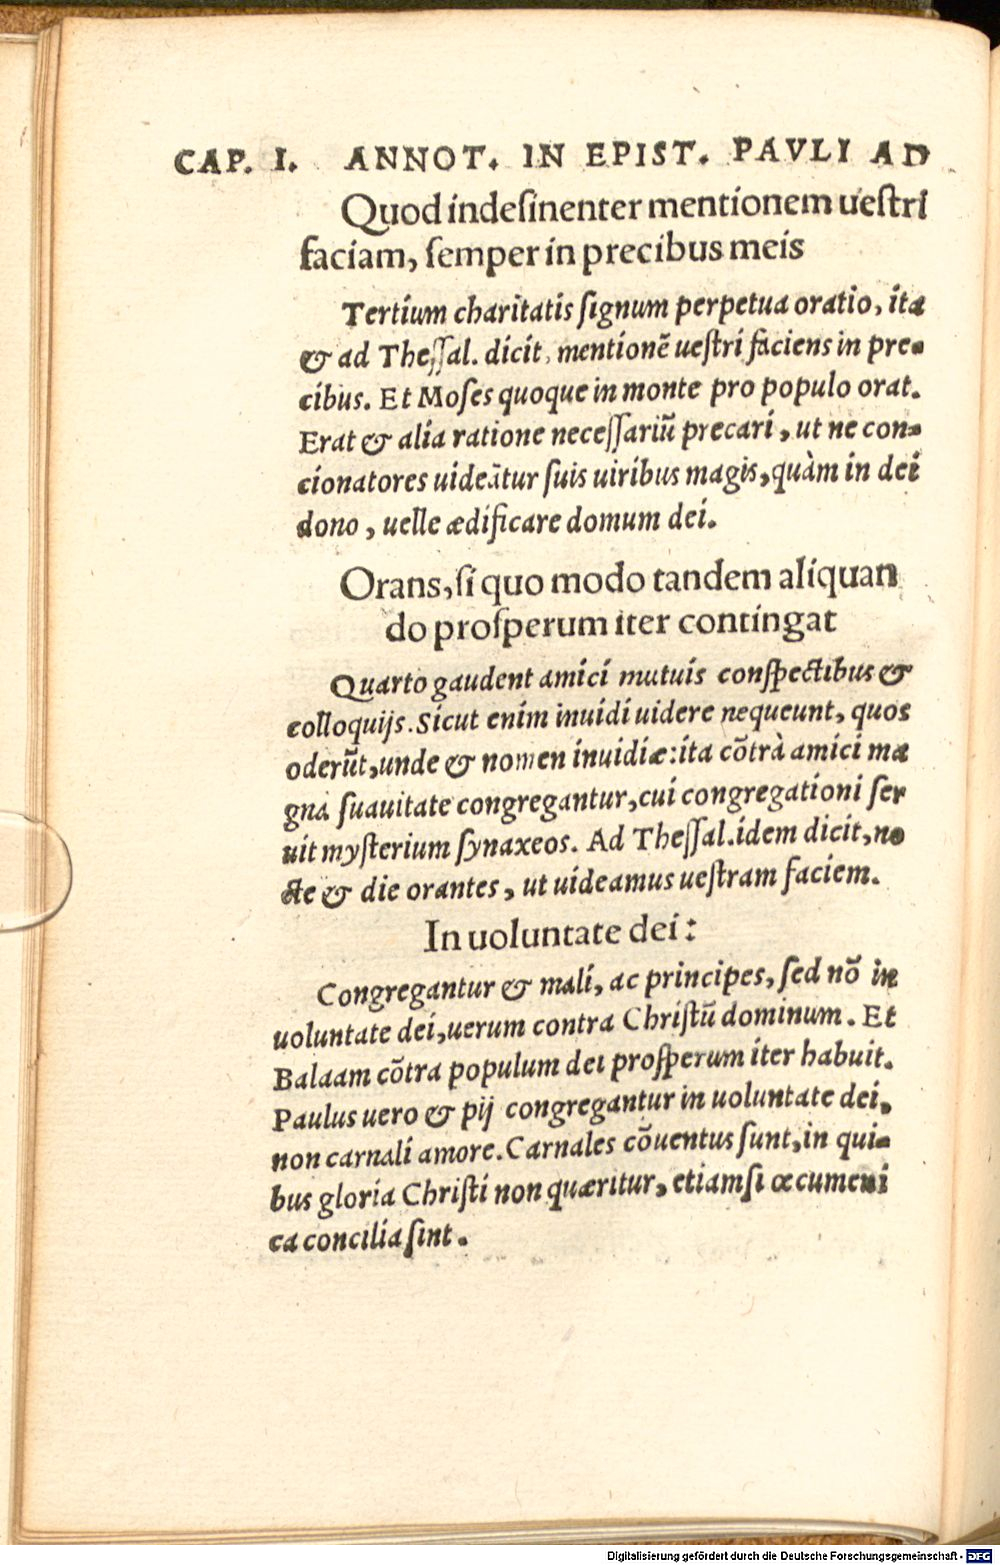 CAP. I. ANNOT. IN EPIST. PAVLI AD
Quod indeſinenter mentionem ueſtri
faciam, ſemper in precibus meis
Tertium charitatis ſignum perpetua oratio, ita
& ad Theſſal. dicit, mentionē ueſtri faciens in pre-
cibus. Et Moſes quoque in monte pro populo orat.
Erat & alia ratione neceſſariū precari, ut ne con-
cionatores uideātur ſuis uiribus magis, quàm in dei
dono, uelle ædificare domum dei.
Orans, ſi quo modo tandem aliquan
do proſperum iter contingat
Quarto gaudent amici mutuis conſpectibus &
colloquijs. Sicut enim inuidi uidere nequeunt, quos
oderūt, unde & nomen inuidiæ: ita cōtrà amici ma
gna ſuauitate congregantur, cui congregationi ſer
uit myſterium ſynaxeos. Ad Theſſal. idem dicit, no
cte & die orantes, ut uideamus ueſtram faciem.
In uoluntate dei:
Congregantur & mali, ac principes, ſed nō in
uoluntate dei, uerum contra Chriſtū dominum. Et
Balaam cōtra populum dei proſperum iter habuit.
Paulus uero & pij congregantur in uoluntate dei,
non carnali amore. Carnales cōuentus ſunt, in qui-
bus gloria Chriſti non quæritur, etiamſi œcumeni
ca concilia ſint.
Digitalisierung gefördert durch die Deutsche Forschungsgemeinschaft - DFG